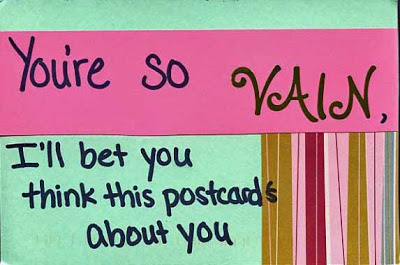 You're so VAIN,
I'll bet you
think this postcard's
about you